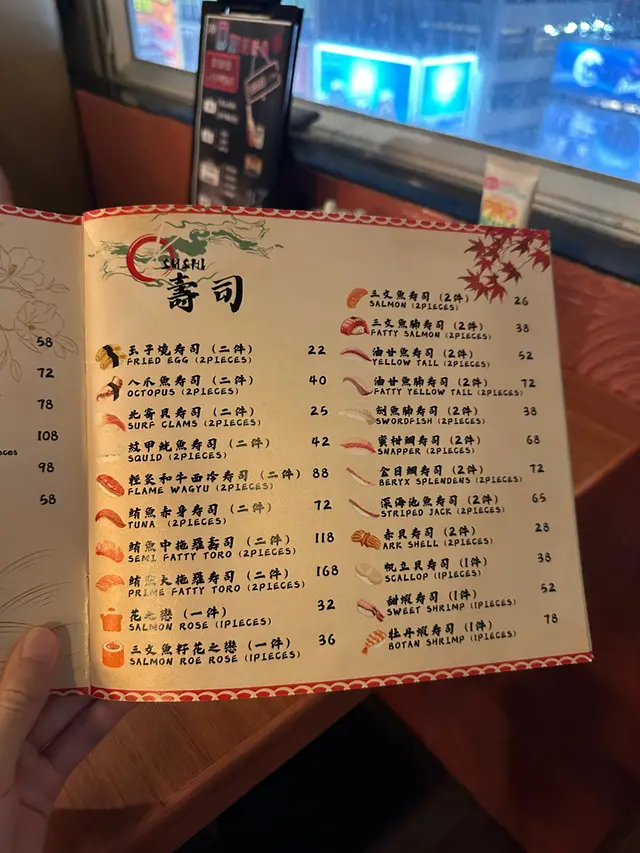 58
72
78
108
98
58
SUSHI
壽司
玉子燒寿司 (二件) 22
FRIED EGG (2PIECES)
八爪魚寿司 (二件) 40
OCTOPUS (2PIECES)
北寄貝寿司 (二件) 25
SURF CLAMS (2PIECES)
紋甲魷魚寿司 (二件) 42
SQUID (2PIECES)
輕炙和牛西冷寿司 (二件) 88
FLAME WAGYU (2PIECES)
鮪魚赤身寿司 (二件) 72
TUNA (2PIECES)
鮪魚中拖羅壽司 (二件) 118
SEMI FATTY TORO (2PIECES)
鮪魚大拖羅寿司 (二件) 168
PRIME FATTY TORO (2PIECES)
花之戀 (一件) 32
SALMON ROSE (1PIECES)
三文魚籽花之戀 (一件) 36
SALMON ROE ROSE (1PIECES)
三文魚寿司 (2件) 26
SALMON (2PIECES)
三文魚腩寿司 (2件) 38
FATTY SALMON (2PIECES)
油甘魚寿司 (2件) 52
YELLOW TAIL (2PIECES)
油甘魚腩寿司 (2件) 72
FATTY YELLOW TAIL (2PIECES)
劍魚腩寿司 (2件) 38
SWORDFISH (2PIECES)
蜜柑鯛寿司 (2件) 68
SNAPPER (2PIECES)
金目鯛寿司 (2件) 72
BERYX SPLENDENS (2PIECES)
深海池魚寿司 (2件) 65
STRIPED JACK (2PIECES)
赤貝寿司 (2件) 28
ARK SHELL (2PIECES)
帆立貝寿司 (1件) 38
SCALLOP (1PIECES)
甜蝦寿司 (1件) 52
SWEET SHRIMP (1PIECES)
牡丹蝦寿司 (1件) 78
BOTAN SHRIMP (1PIECES)